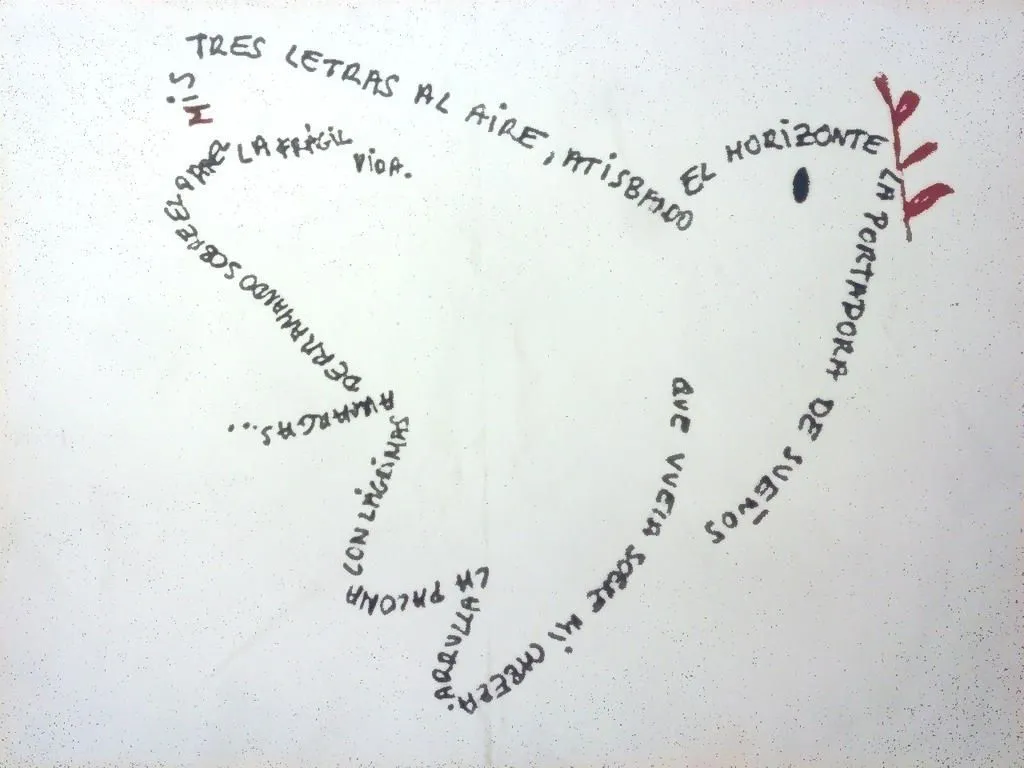 MiS
TRES LETRAS AL AiRE, ATiSBANDO
EL HORiZONTE
LA PORTADORA DE SUEÑOS
QUE VUELA SOBRE MÍ CABEZA.
ARRULLA
LA PALOMA
CON LÁGRIMAS
AMARGAS...
DERRAMANDO SOBRE EL
LA FRÁGiL
ViDA.